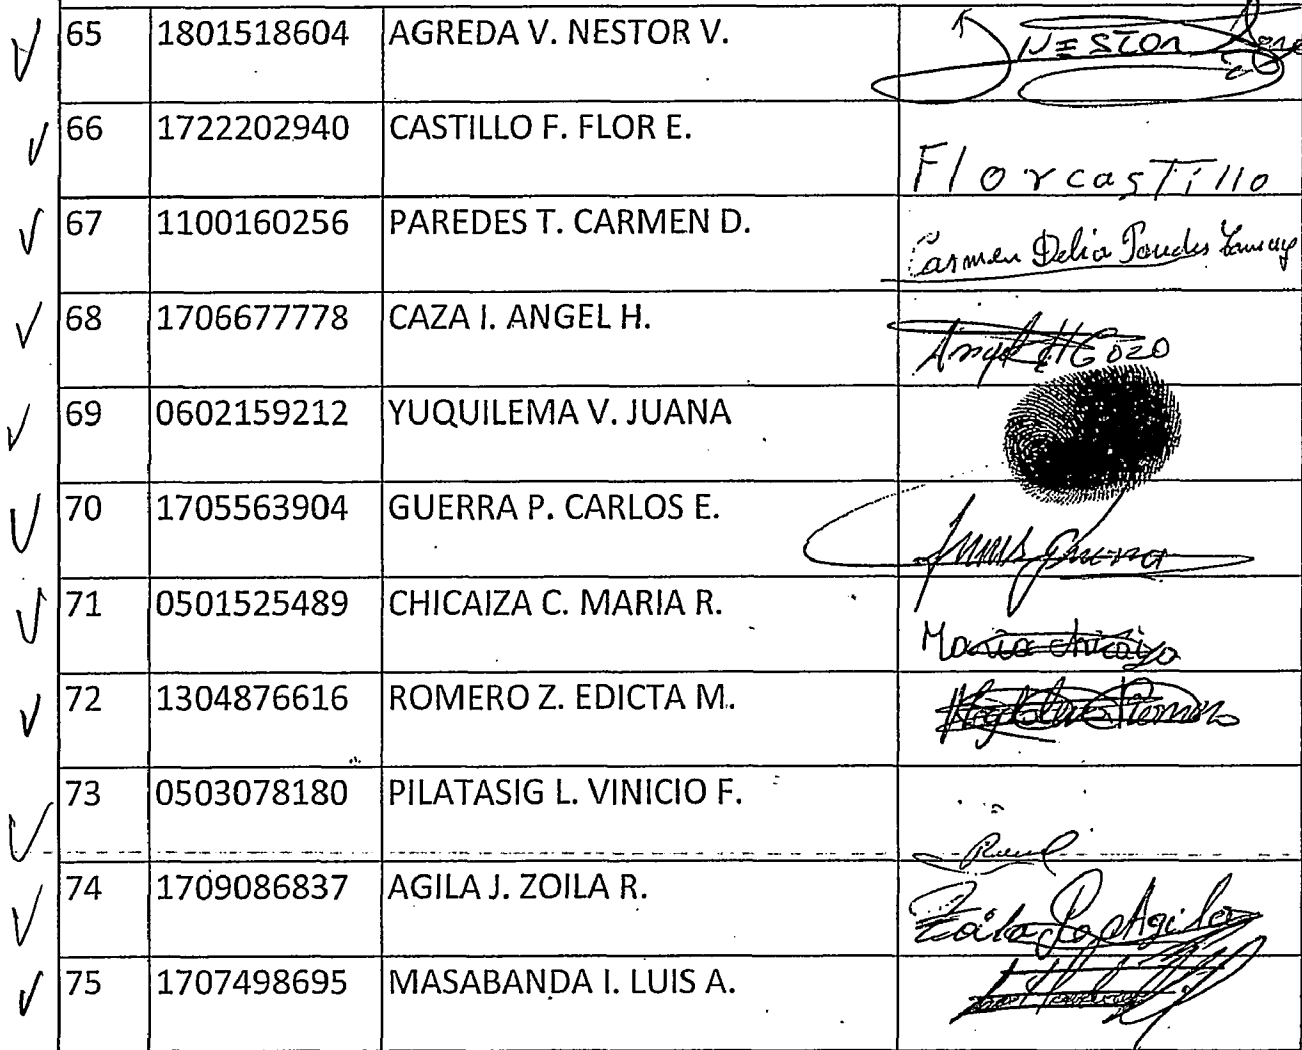 65 1801518604 AGREDA V. NESTOR V. NESTOR
66 1722202940 CASTILLO F. FLOR E. Flor castillo
67 1100160256 PAREDES T. CARMEN D. Carmen Delia Paredes
68 1706677778 CAZA I. ANGEL H. Angel H Caza
69 0602159212 YUQUILEMA V. JUANA
70 1705563904 GUERRA P. CARLOS E. Guerra
71 0501525489 CHICAIZA C. MARIA R. Maria chicaiza
72 1304876616 ROMERO Z. EDICTA M. Romero
73 0503078180 PILATASIG L. VINICIO F.
74 1709086837 AGILA J. ZOILA R. Zoila Agila
75 1707498695 MASABANDA I. LUIS A.